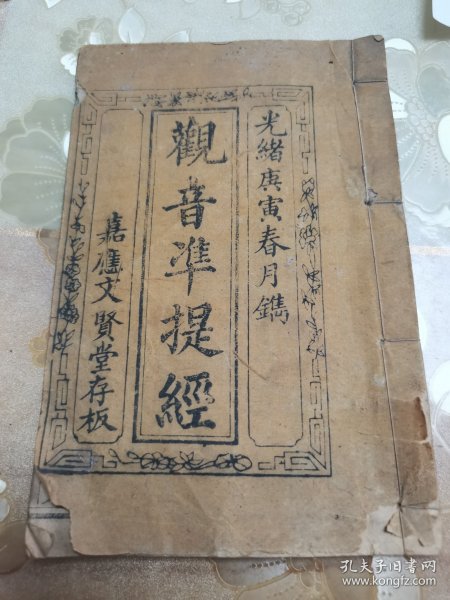 光緒庚寅春月鐫
觀音準提經
嘉應文賢堂存板
孔夫子旧书网
www.kongfz.com